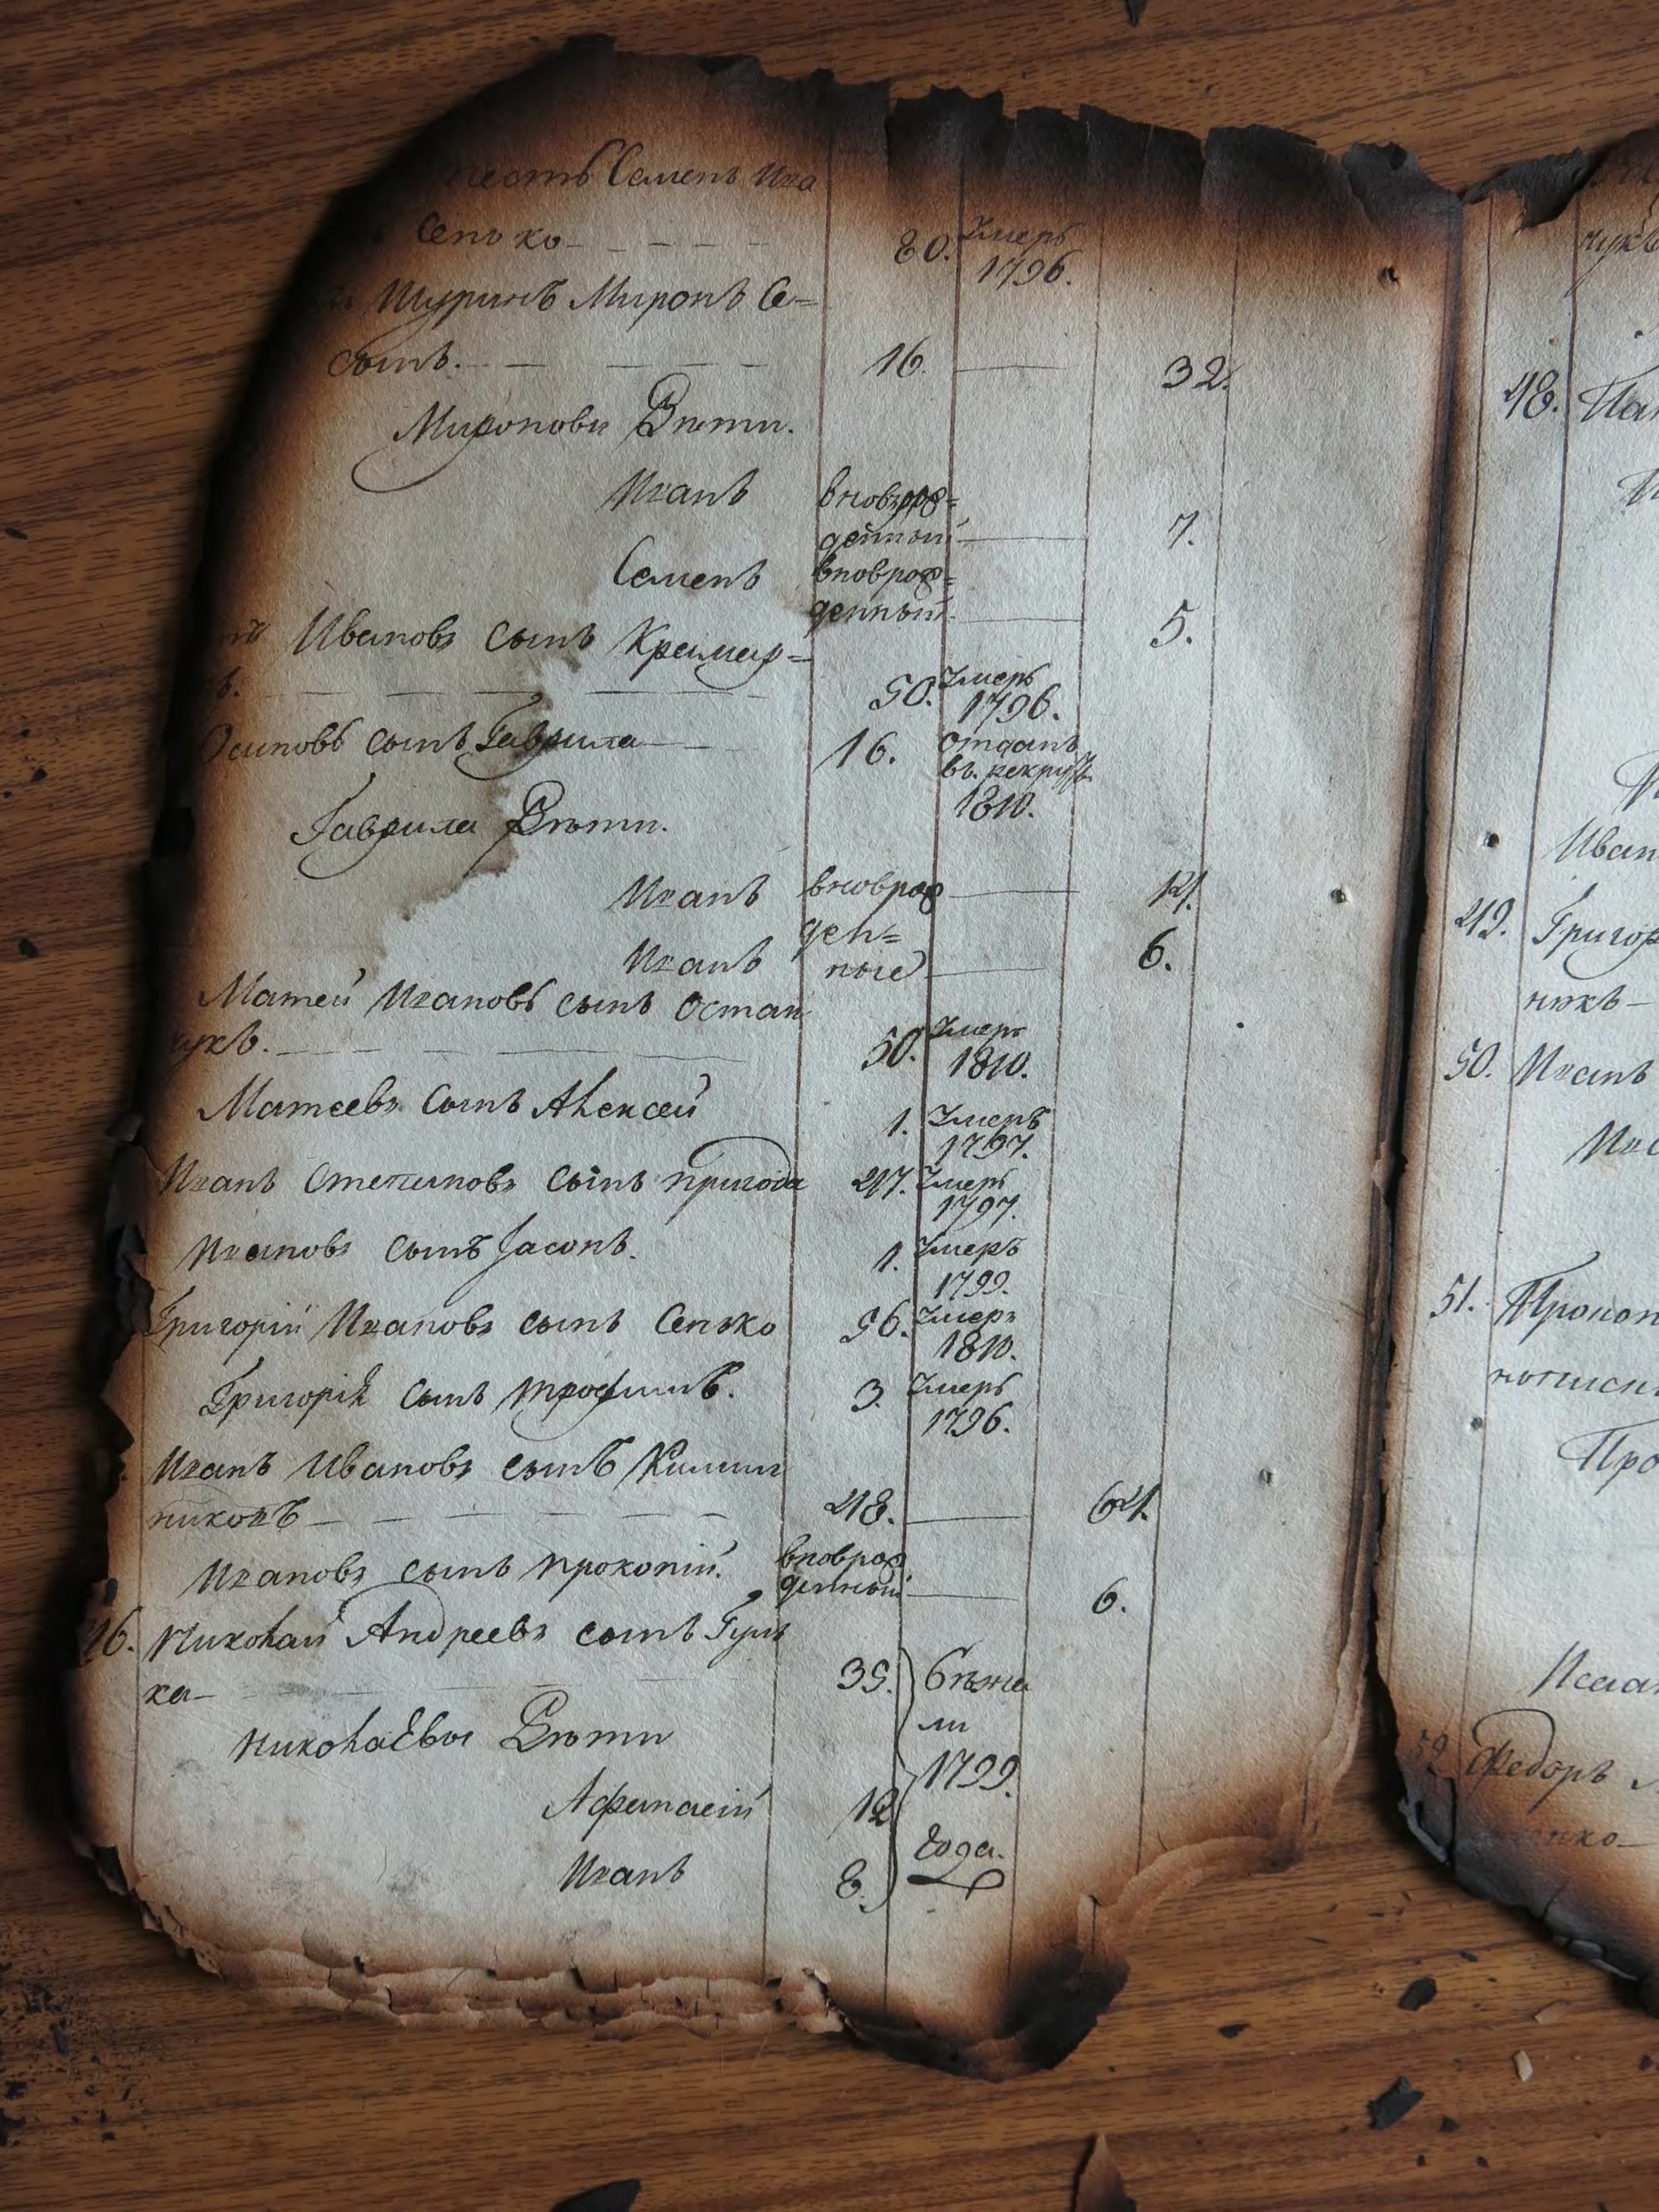 тесть Семенъ Ива
Сенько 80. Умеръ
1796.
Шуринъ Миронъ Се=
сынъ. 16. 32.
Мироновы Дѣти.
Иванъ вновьрож=
денный 7.
Семенъ вноврож=
денный 5.
Ивановъ сынъ Крамар=
ъ. 50. Умеръ
1796.
Осиповъ сынъ Гаврила 16. отданъ
въ рекруты
1810.
Гаврила Дѣти.
Иванъ вноврож 14.
ден=
Иванъ ные 6.
Матей Ивановъ сынъ Остап
чукъ. 50. Умеръ
1810.
Матеевъ сынъ Алексей 1. Умеръ
1797.
Иванъ Степановъ сынъ пригода 47. Умеръ
1797.
Ивановъ сынъ Іасонъ. 1. Умеръ
1799.
Григорій Ивановъ сынъ Сенько 56. Умеръ
1810.
Григорія сынъ трофимъ. 3. Умеръ
1796.
Иванъ Ивановъ сынъ
никовъ 48. 64.
Ивановъ сынъ прокопій. вноврож
денный 6.
46. Николай Андреевъ сынъ
ка 35. бѣжа
ли
Николаевы Дѣти 1799.
Афанасій 12
года.
Иванъ 8.
чукъ
48.
Иван
49. Григор
нюкъ
50. Иванъ
51. Прокоп
Про
52 Федоръ
енко